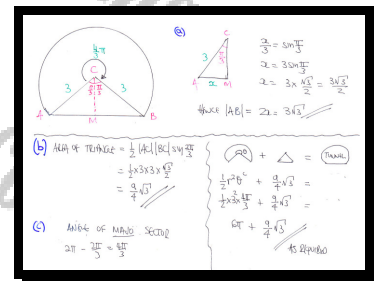 (a)
4/3 π
C
π/3 π/3
3 3
A M B
C
3 π/3
A x M
x/3 = sin π/3
x = 3 sin π/3
x = 3 × √3/2 = 3√3/2
HENCE |AB| = 2x = 3√3
(b) AREA OF TRIANGLE = 1/2 |AC||BC| sin
= 1/2 × 3 × 3 × √3/2
= 9/4 √3
(c) ANGLE OF MAJOR SECTOR
2π - 2π/3 = 4π/3
+ =
1/2 r²θ + 9/4 √3 =
1/2 × 3² × 4π/3 + 9/4 √3 =
6π + 9/4 √3
AS REQUIRED